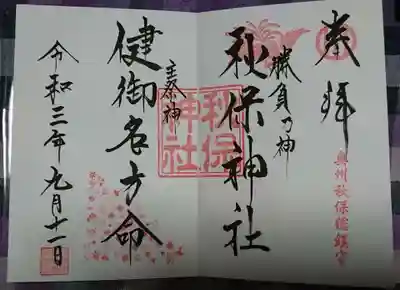 奉拝
奥州秋保鎮守
勝負乃神
秋保神社
秋保
神社
主祭神
健御名方命
令和三年九月十一日